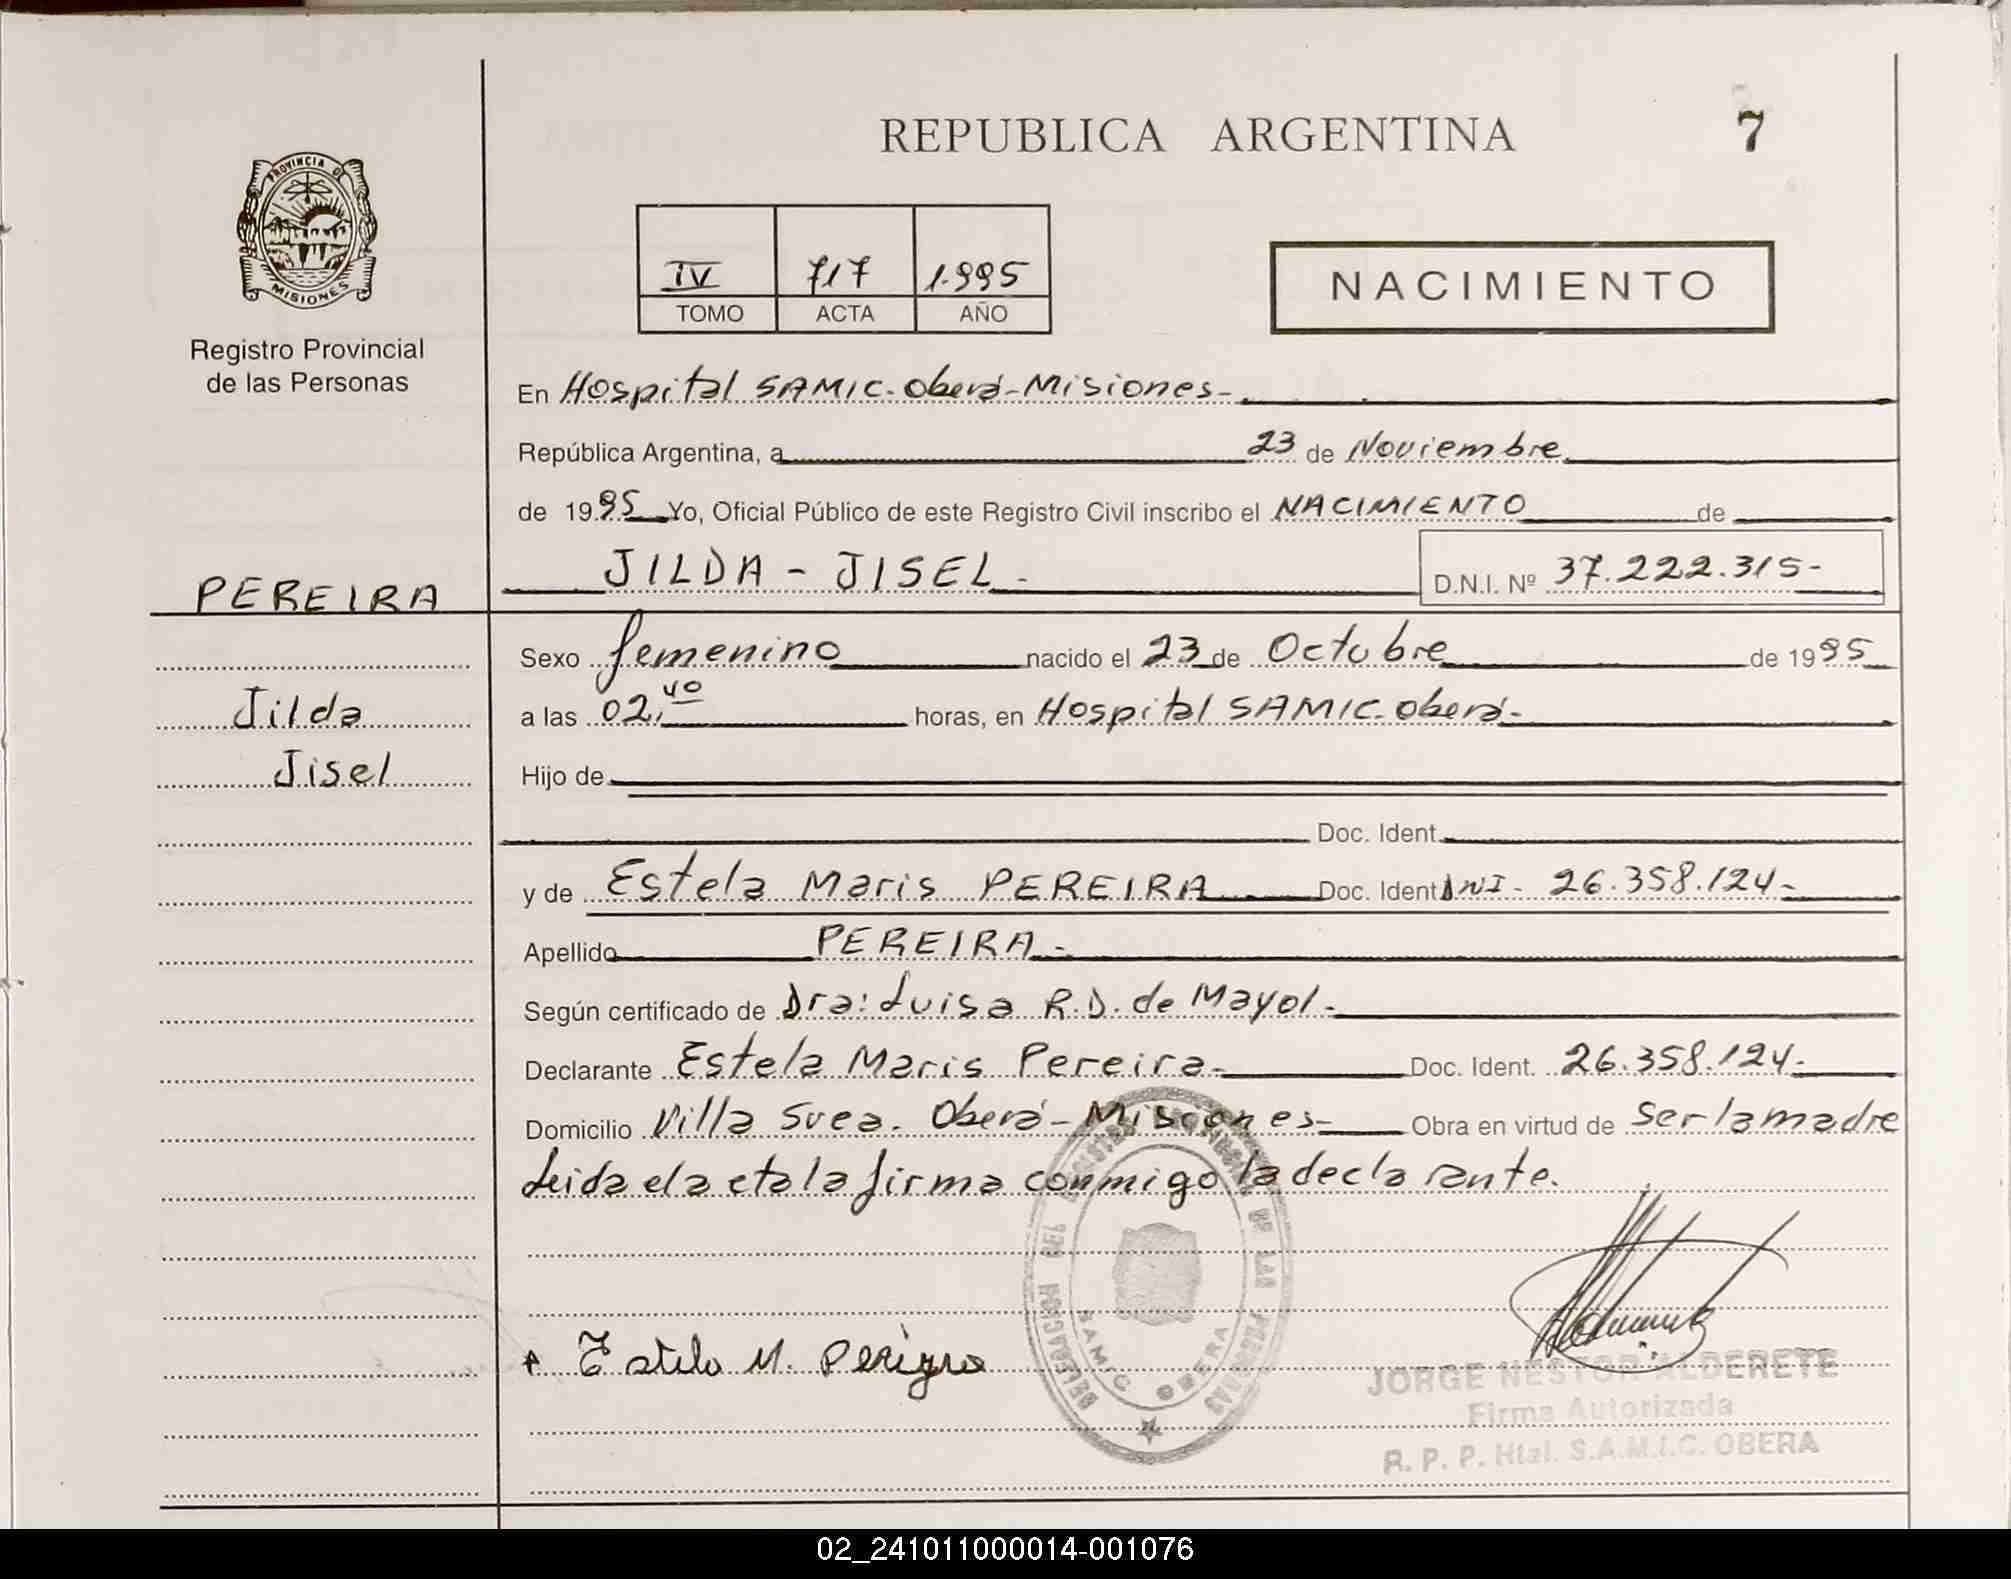 REPUBLICA ARGENTINA
7
PROVINCIA DE
MISIONES
Registro Provincial
de las Personas
IV 717 1.995
TOMO ACTA AÑO
NACIMIENTO
En Hospital SAMIC-Oberá-Misiones-
República Argentina, a 23 de Noviembre
de 1995 Yo, Oficial Público de este Registro Civil inscribo el NACIMIENTO de
JILDA - JISEL - D.N.I. Nº 37.222.315-
PEREIRA
Jilda
Jisel
Sexo femenino nacido el 23 de Octubre de 1995
a las 02,40 horas, en Hospital SAMIC-Oberá-
Hijo de
Doc. Ident.
y de Estela Maris PEREIRA Doc. Ident DNI- 26.358.124-
Apellido PEREIRA-
Según certificado de Dra: Luisa R.D. de Mayol-
Declarante Estela Maris Pereira- Doc. Ident. 26.358.124-
Domicilio Villa Svea. Oberá-Misiones- Obra en virtud de Ser la madre
Leida el acta la firma conmigo la declarante.
DELEGACION DEL REGISTRO PROVINCIAL DE LAS PERSONAS
SAMIC OBERA
Estela M. Pereyra
JORGE NESTOR ALDERETE
Firma Autorizada
R. P. P. Htal. S.A.M.I.C. OBERA
02_241011000014-001076